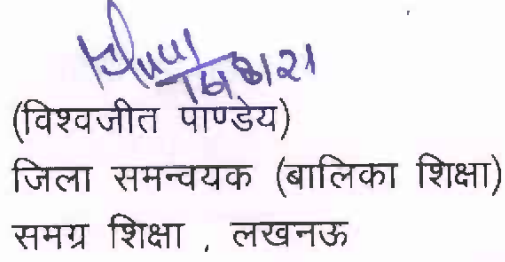 8/21
(विश्वजीत पाण्डेय)
जिला समन्वयक (बालिका शिक्षा)
समग्र शिक्षा , लखनऊ